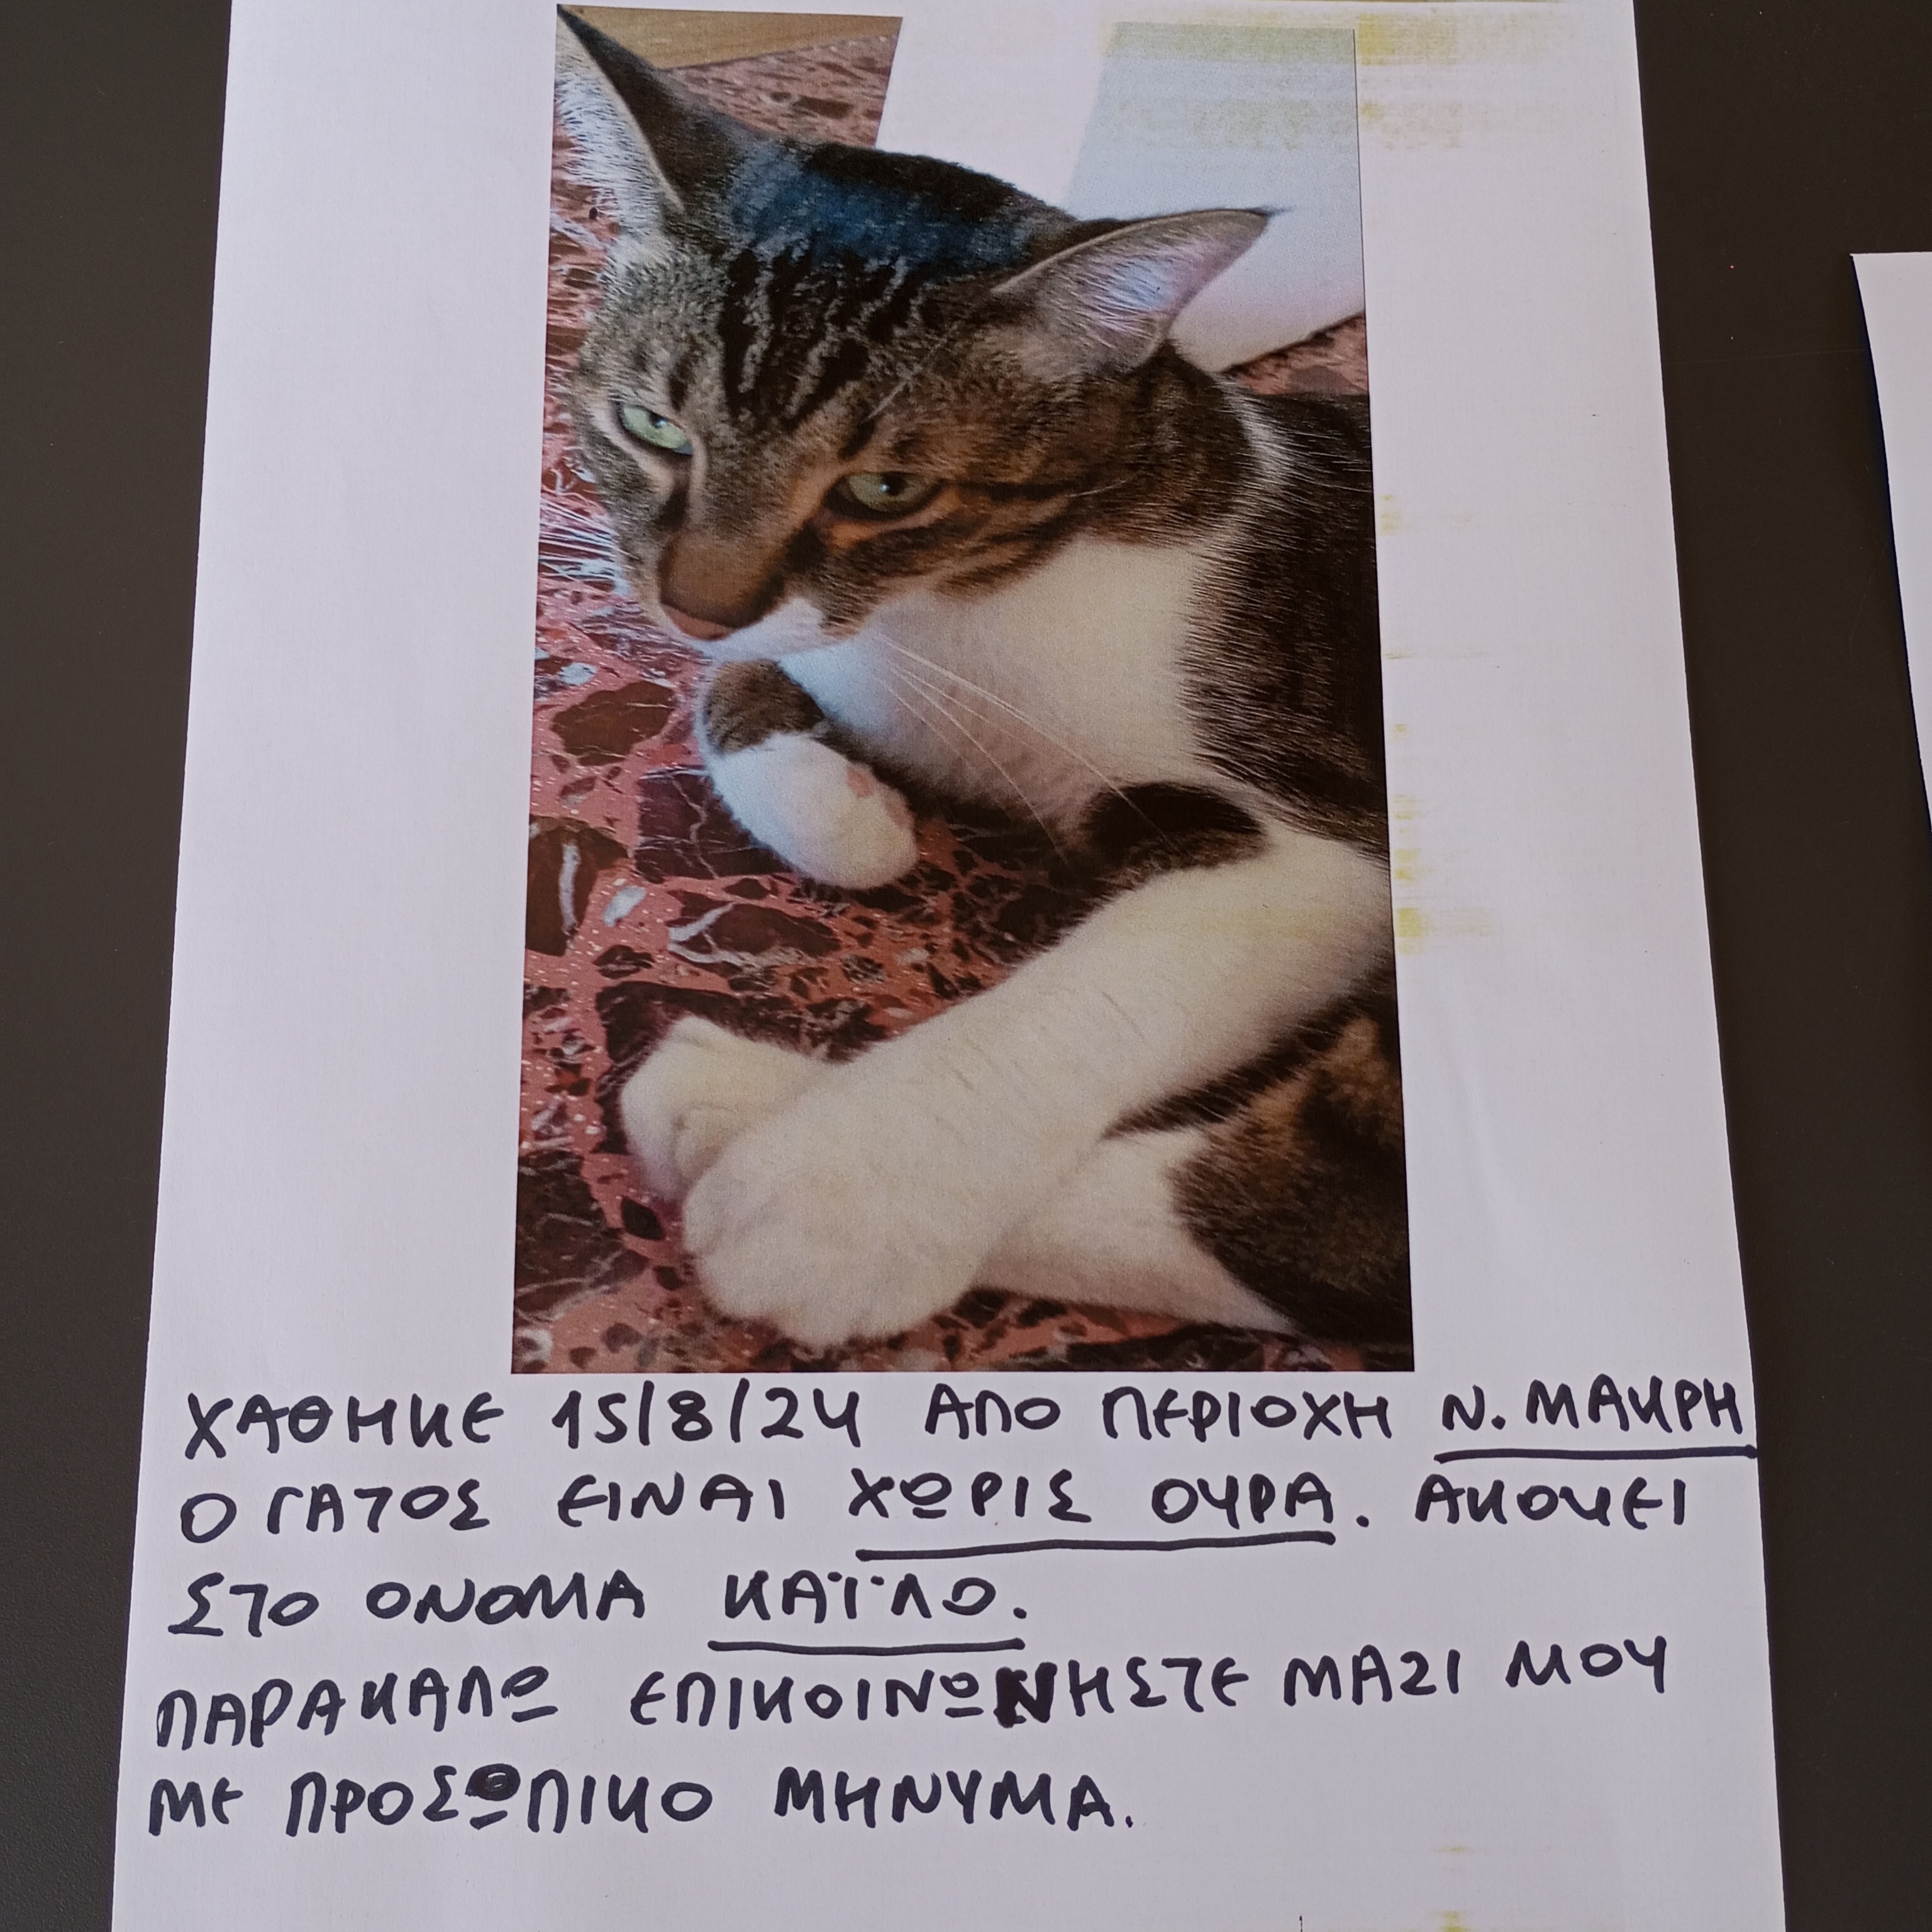 ΧΑΘΗΚΕ 15/8/24 ΑΠΟ ΠΕΡΙΟΧΗ Ν. ΜΑΚΡΗ
Ο ΓΑΤΟΣ ΕΙΝΑΙ ΧΩΡΙΣ ΟΥΡΑ. ΑΚΟΥΕΙ
ΣΤΟ ΟΝΟΜΑ ΚΑΪΛΟ.
ΠΑΡΑΚΑΛΩ ΕΠΙΚΟΙΝΩΝΗΣΤΕ ΜΑΖΙ ΜΟΥ
ΜΕ ΠΡΟΣΩΠΙΚΟ ΜΗΝΥΜΑ.